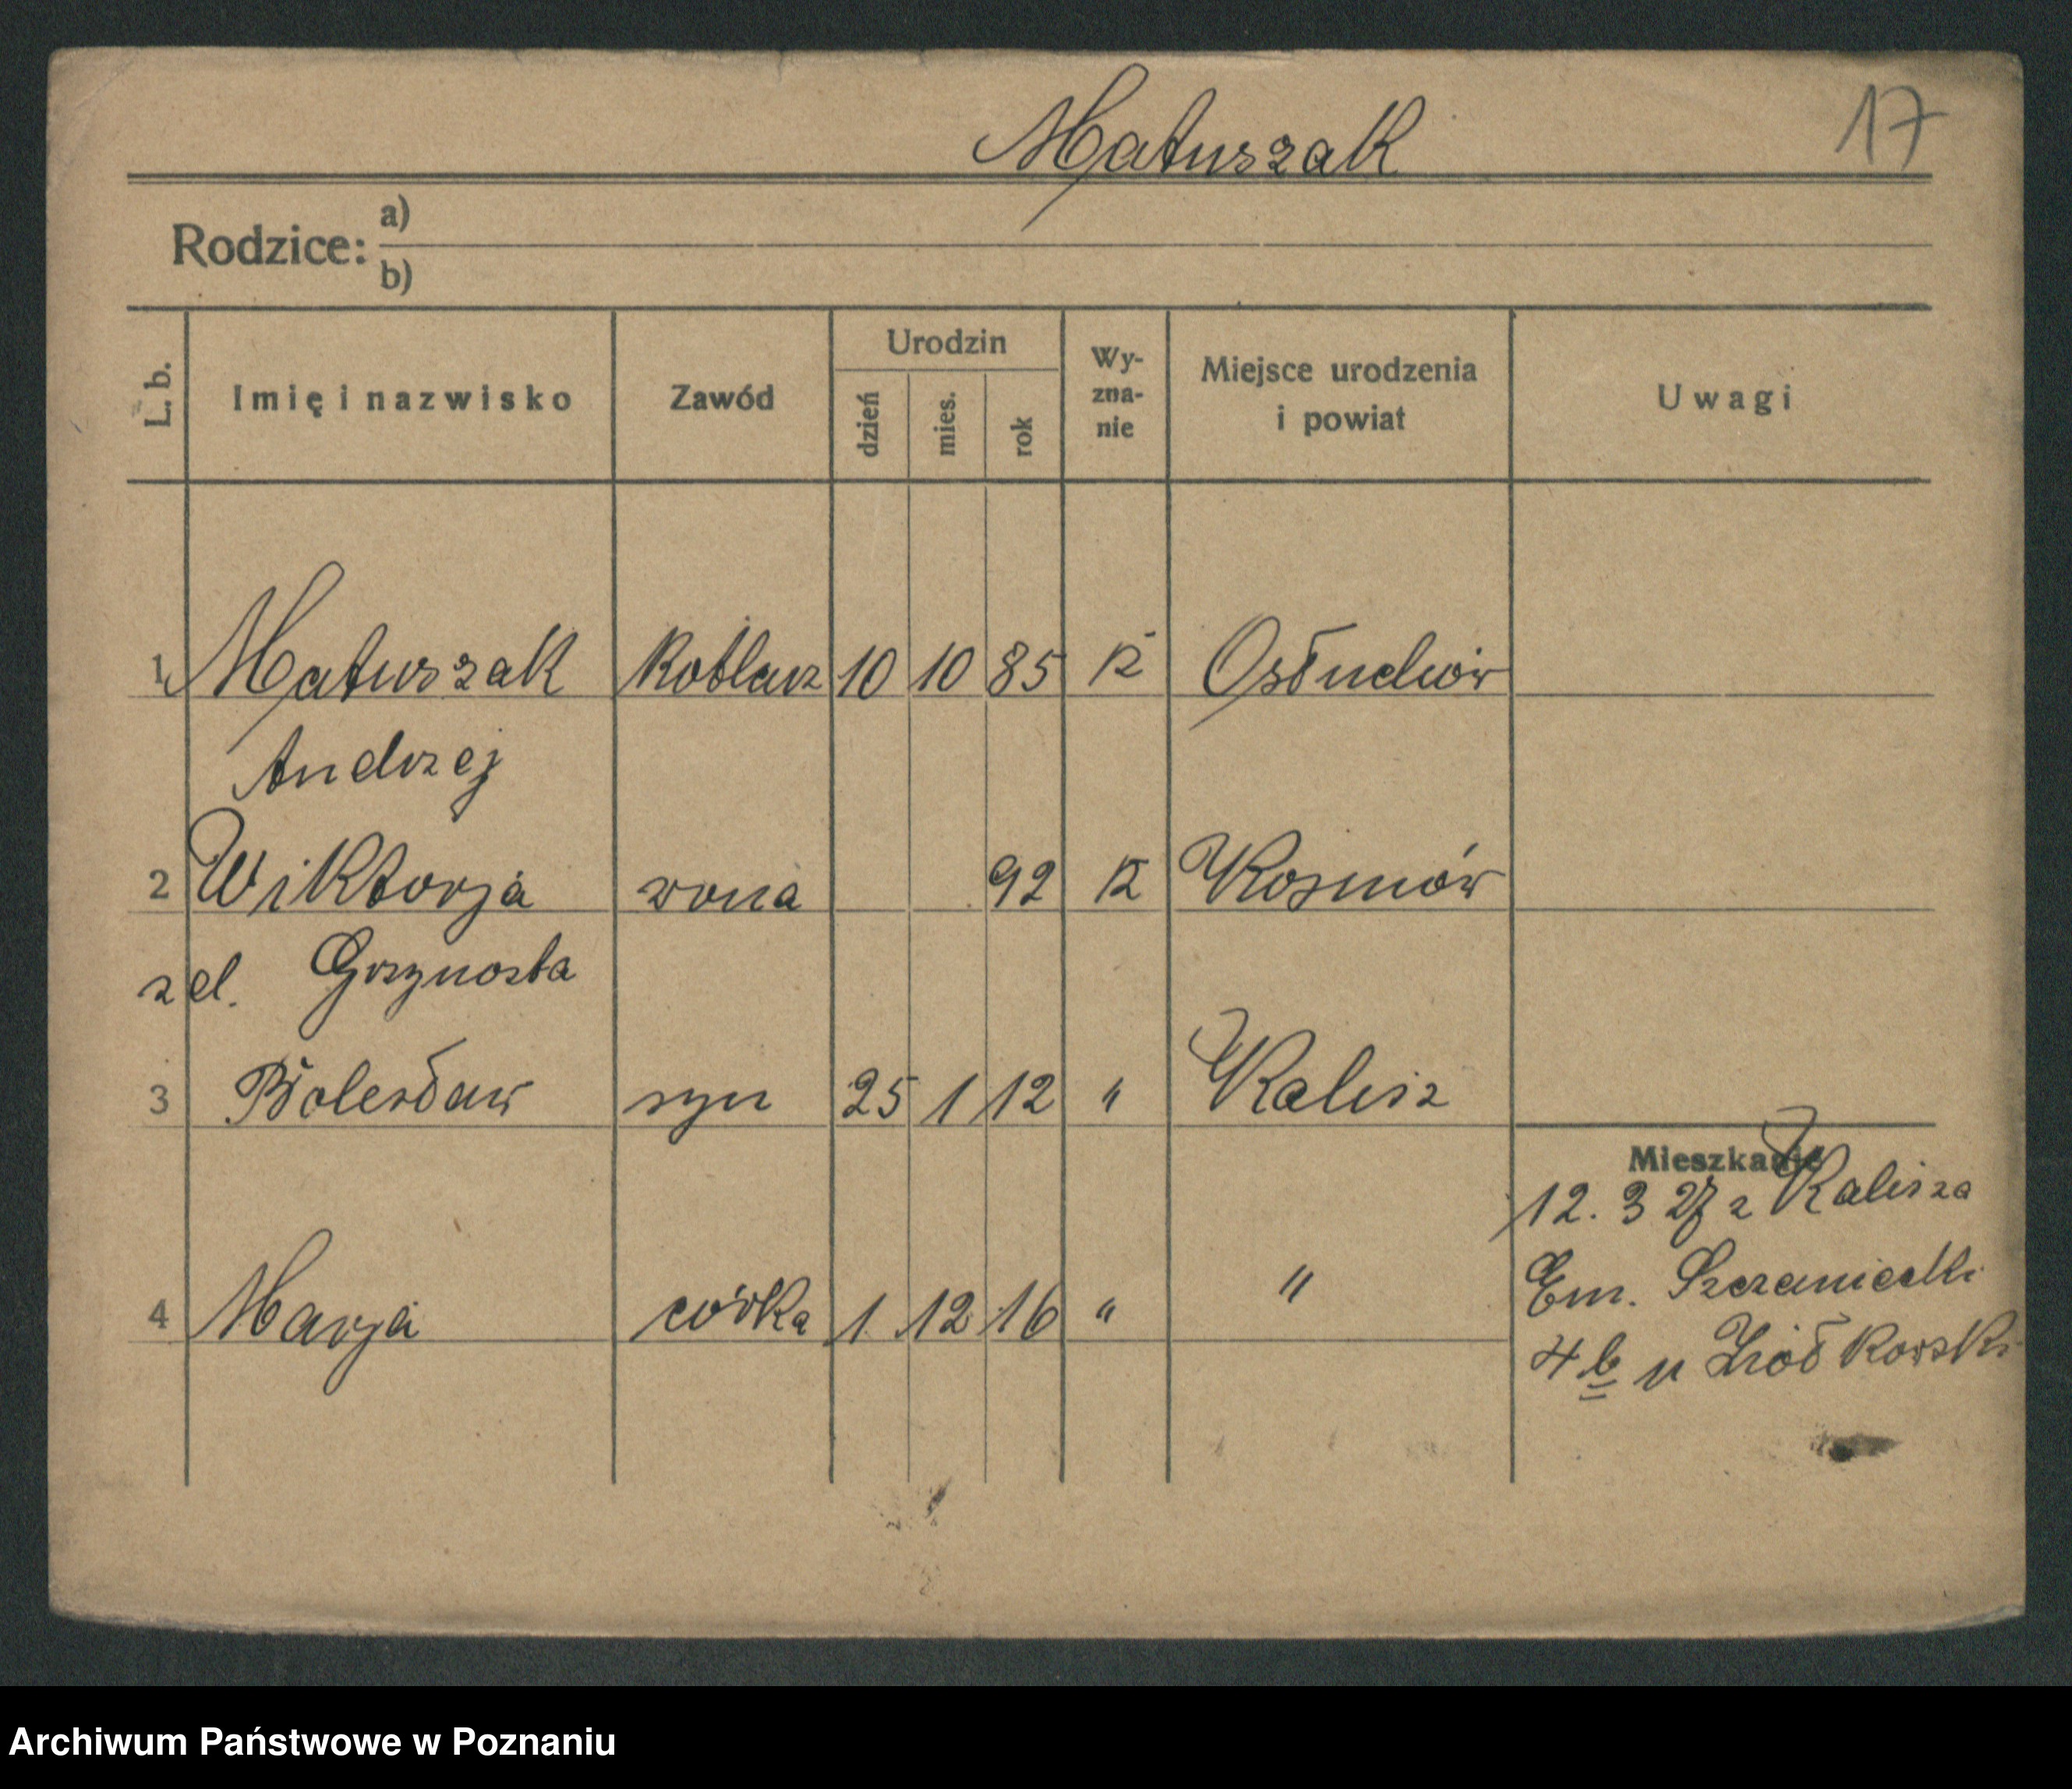 Matuszak 17
Rodzice: a)
b)
L. b. Imię i nazwisko Zawód Urodzin dzień mies. rok Wy-zna-nie Miejsce urodzenia i powiat Uwagi
1 Matuszak kotlarz 10 10 85 K Osłuchów
Andrzej
2 Wiktorja żona 92 K Kosmów
z d. Grzynosta
3 Bolesław syn 25 1 12 " Kalisz
Mieszkanie
12. 3 27 z Kalisza
Em. Szczanieckiej
4 Marja córka 1 12 16 " "
4 b u Ziółkowski
Archiwum Państwowe w Poznaniu